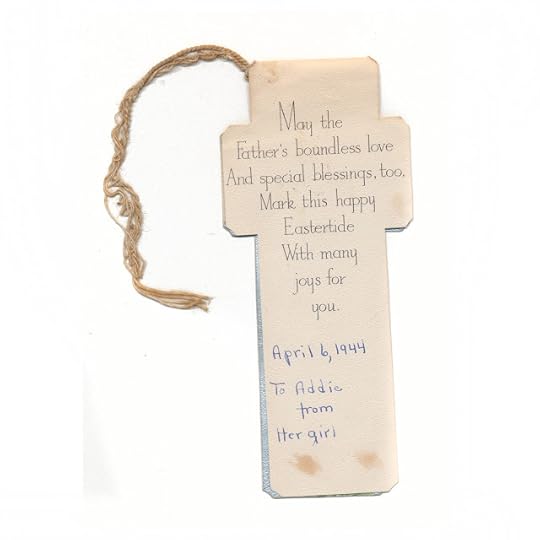 May the
Father's boundless love
And special blessings, too,
Mark this happy
Eastertide
With many
joys for
you.
April 6, 1944
To Addie
from
Her girl